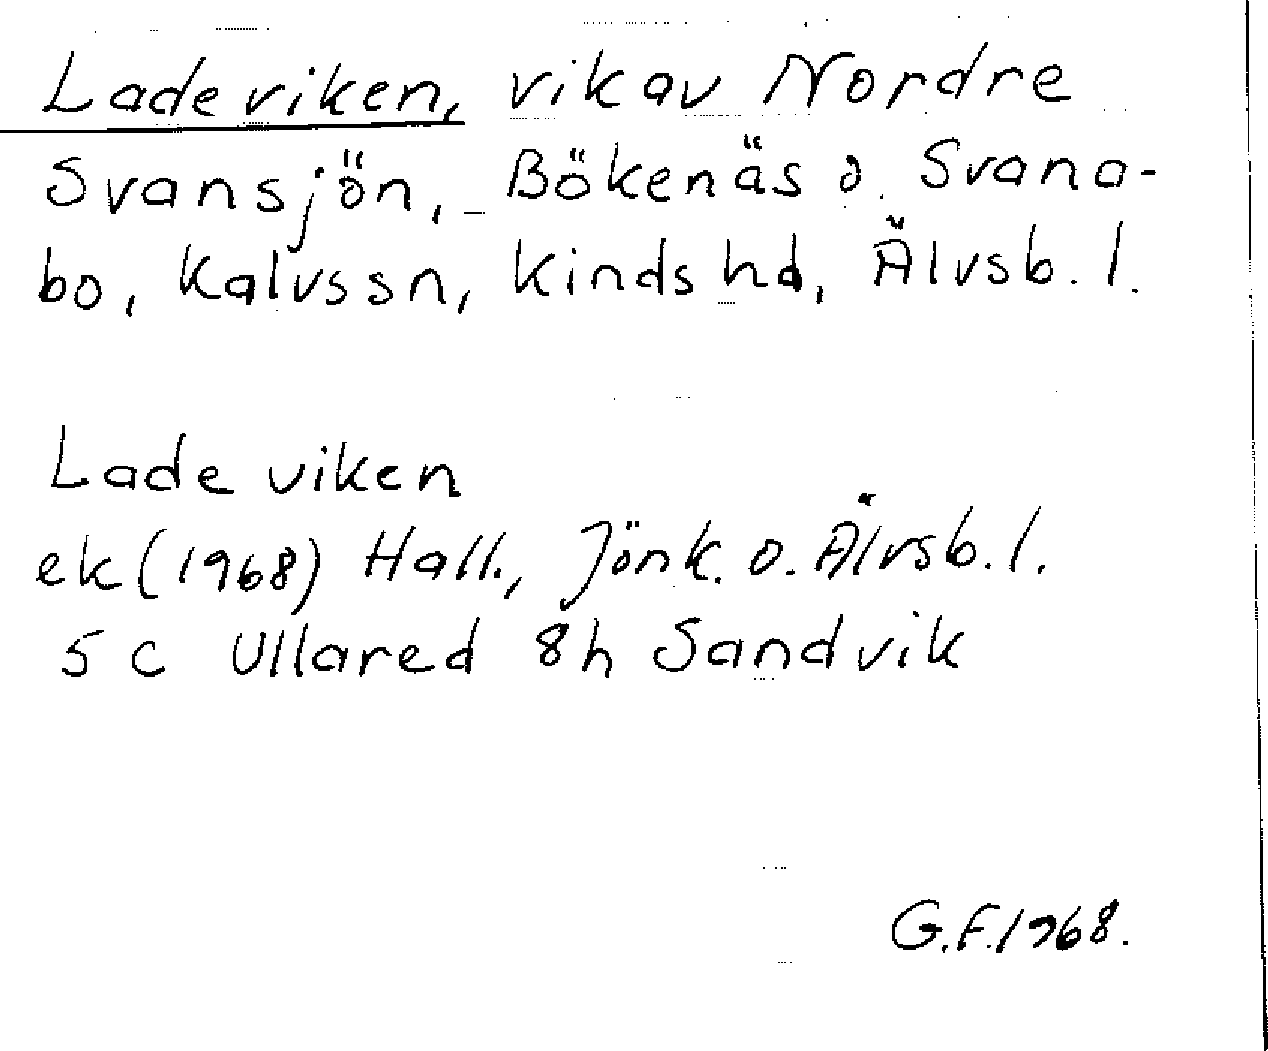 Ladeviken, vik av Nordre
Svansjön, Bökenäs o. Svana-
bo, Kalvssn, Kinds hd, Älvsb. l.
Lade viken
ek (1968) Hall., Jönk. o. Älvsb. l.
5 C Ullared 8h Sandvik
G.F. 1968.